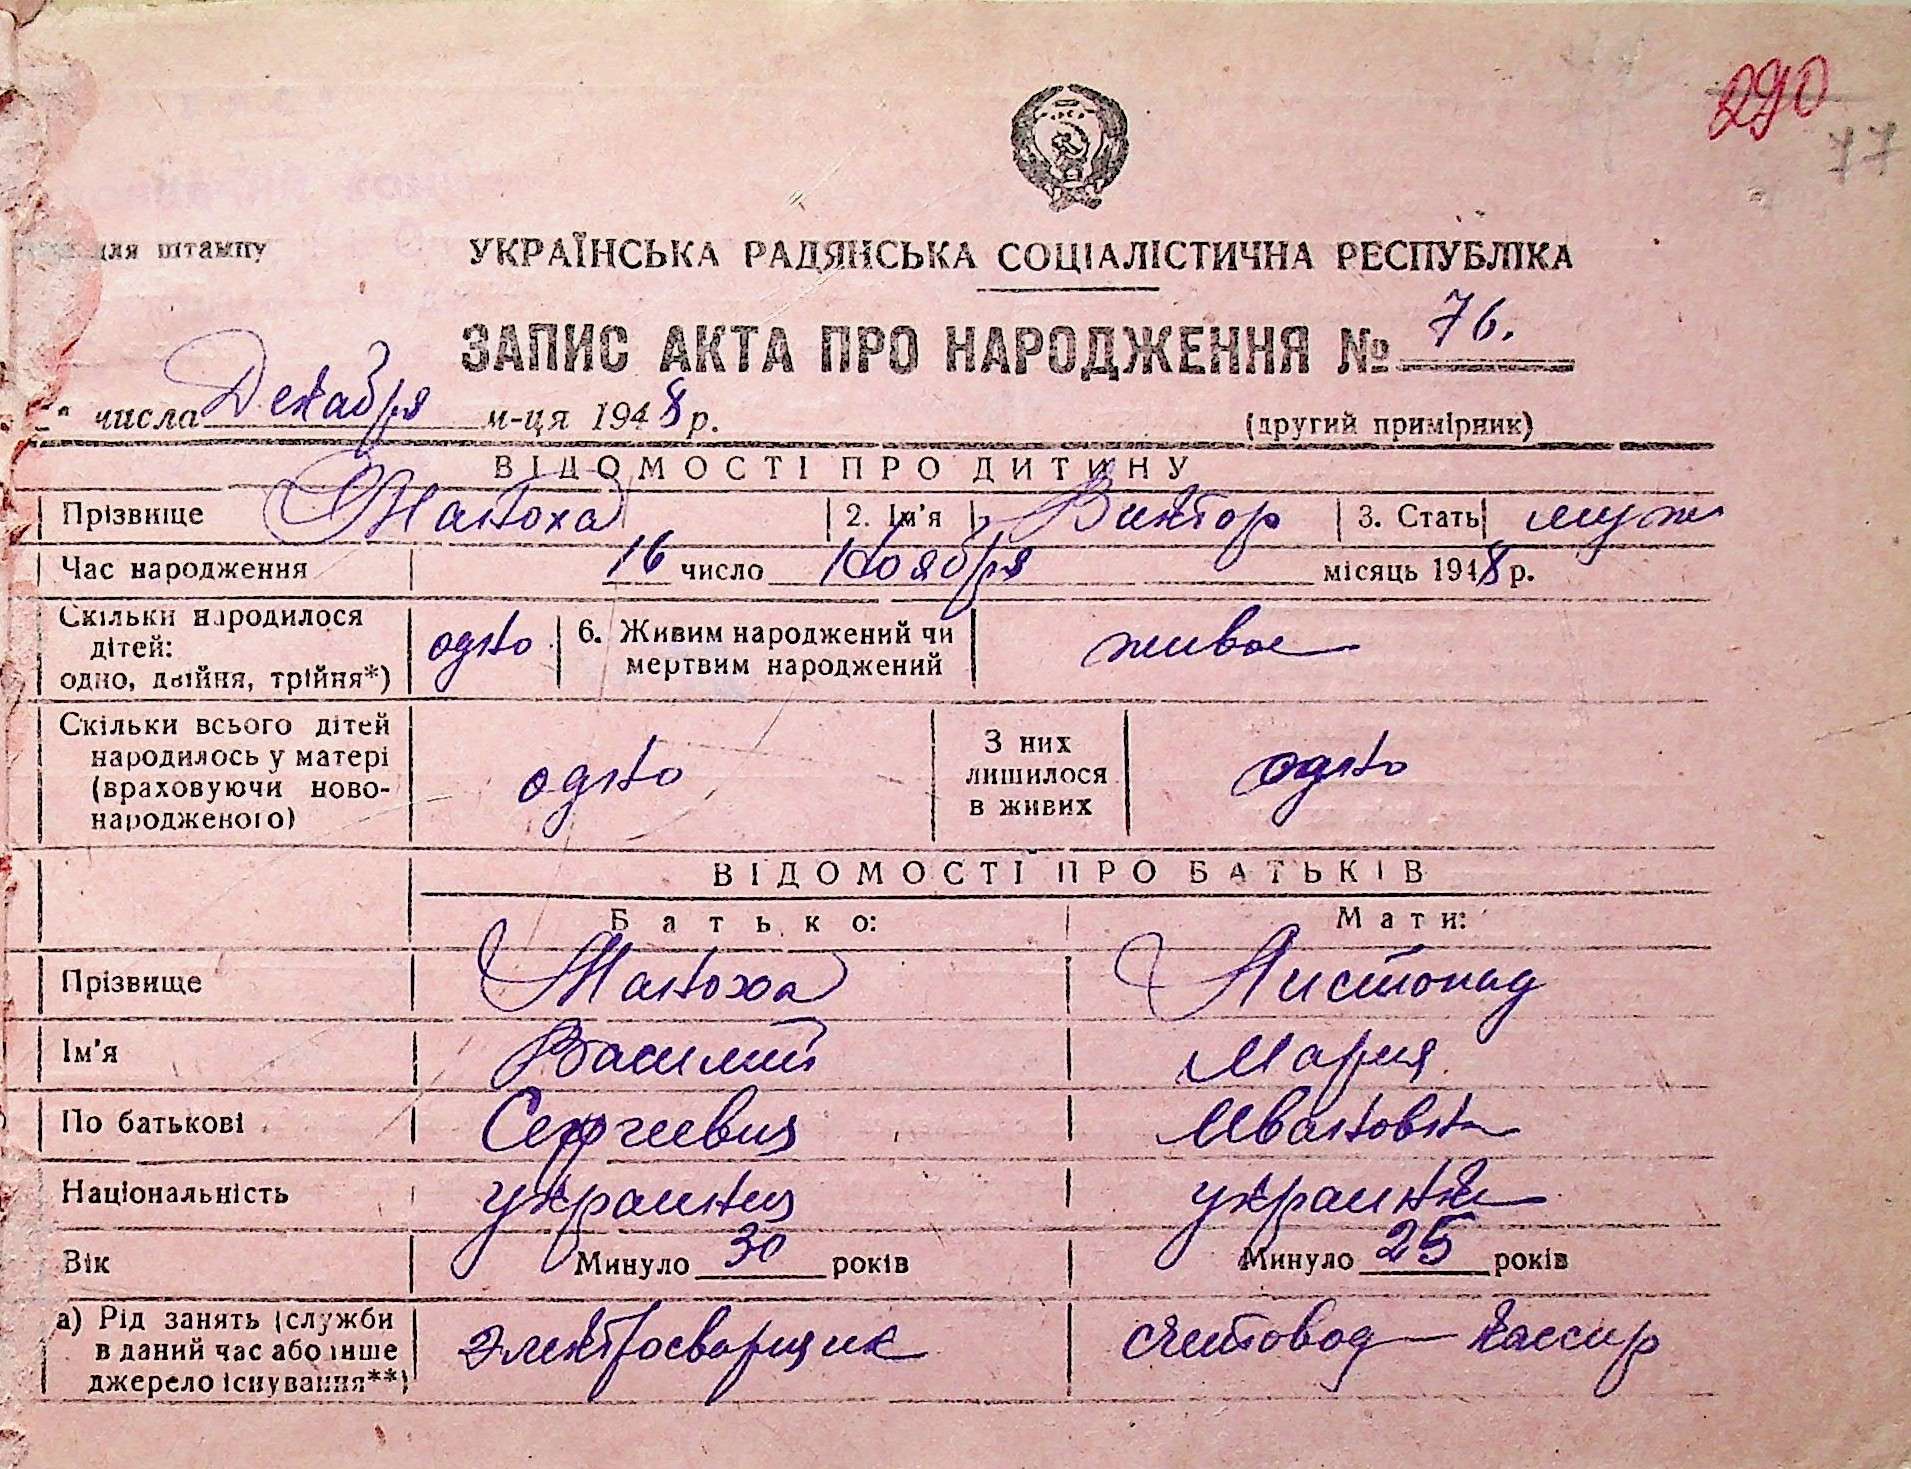 290
77
для штампу
УКРАЇНСЬКА РАДЯНСЬКА СОЦІАЛІСТИЧНА РЕСПУБЛІКА
ЗАПИС АКТА ПРО НАРОДЖЕННЯ № 76.
числа Декабря м-ця 1948 р. (другий примірник)
ВІДОМОСТІ ПРО ДИТИНУ
Прізвище Манoха 2. Ім'я Виктор 3. Стать муж
Час народження 16 число Ноября місяць 1948 р.
Скільки народилося дітей: одно, двійня, трійня*) одно 6. Живим народжений чи мертвим народжений живое
Скільки всього дітей народилось у матері (враховуючи ново-народженого) одно З них лишилося в живих одно
ВІДОМОСТІ ПРО БАТЬКІВ
Батько: Мати:
Прізвище Маноха Листопад
Ім'я Василий Мария
По батькові Сергеевич Ивановна
Національність украинец украинка
Вік Минуло 30 років Минуло 25 років
а) Рід занять (служби в даний час або інше джерело існування**) электросварщик счетовод-кассир